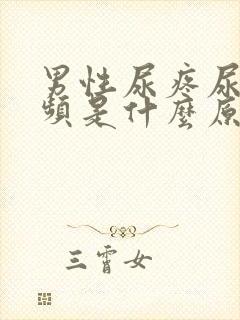 男性尿疼尿
頻是什麼原
三霄女